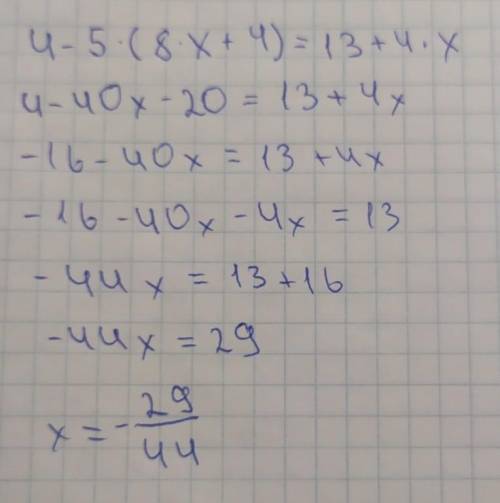 4-5·(8·x+4)=13+4·x
4-40x-20=13+4x
-16-40x=13+4x
-16-40x-4x=13
-44x=13+16
-44x=29
x=-29/44